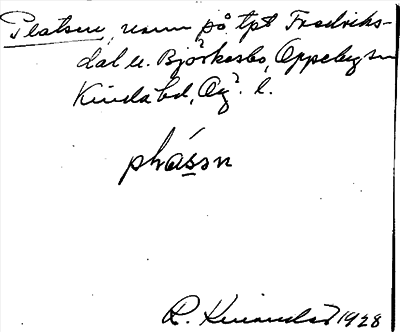 Platsen, namn på tpt Fredriks-
dal u. Björkesbo, Oppeby sn
Kinda hd, Ög. l.
plássn
R. 1928